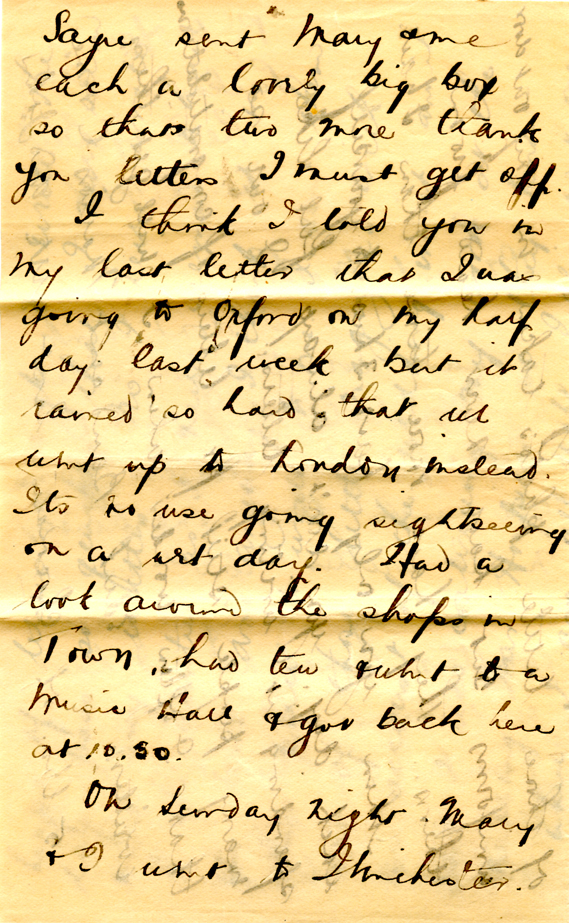 Sayre sent Mary & me
each a lovely big box
so thats two more thank
you letters I must get off.
I think I told you in
my last letter that I was
going to Oxford on my half
day last week but it
rained so hard that we
went up to London instead.
Its no use going sightseeing
on a wet day. Had a
look around the shops in
Town, had tea & went to a
Music Hall & got back here
at 10.30.
On Sunday night Mary
& I went to Winchester.